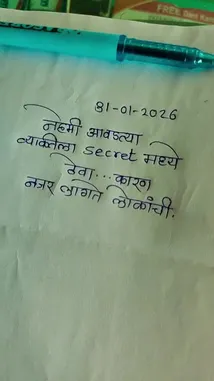 FREE
31-01-2026
नेहमी आवडत्या
व्यक्तीला secret मध्ये
ठेवा... कारण
नजर लागते लोकांची.